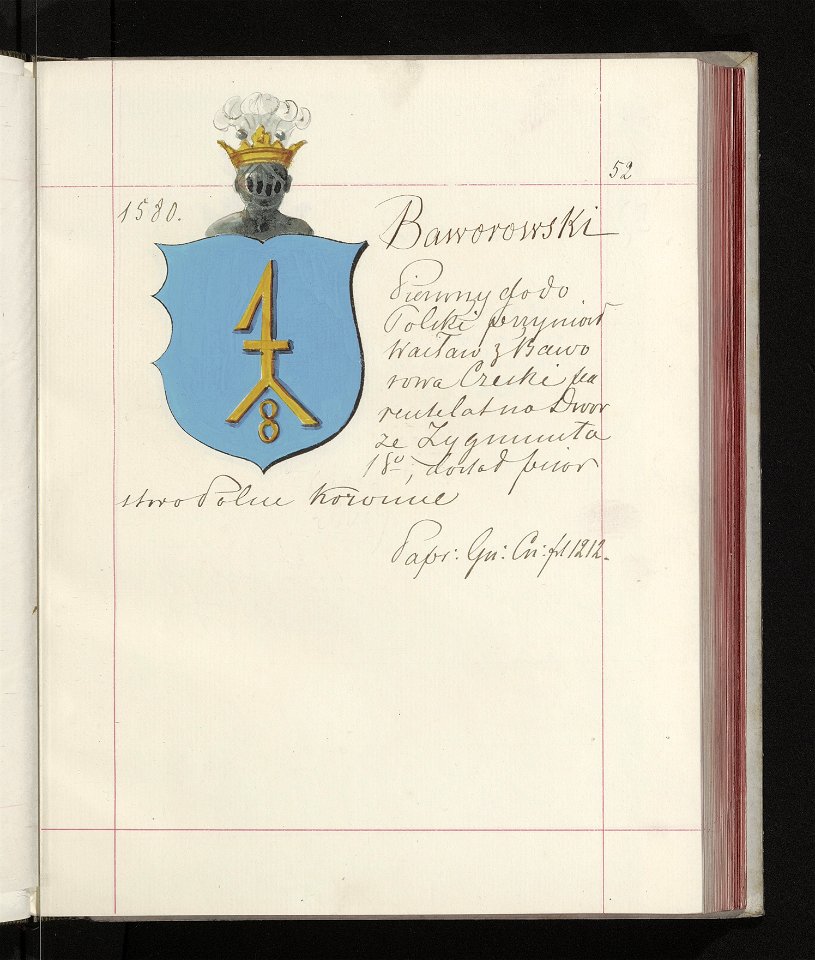 52
1580.
Baworowski
Pierwszy do
Polski przyniosł
Wacław z Bawo
rowa Czeski
na Dwor
ze Zygmunta
1go,
stwo Polue Koronne
Papr: Gn: Cn: fol 1212.
8